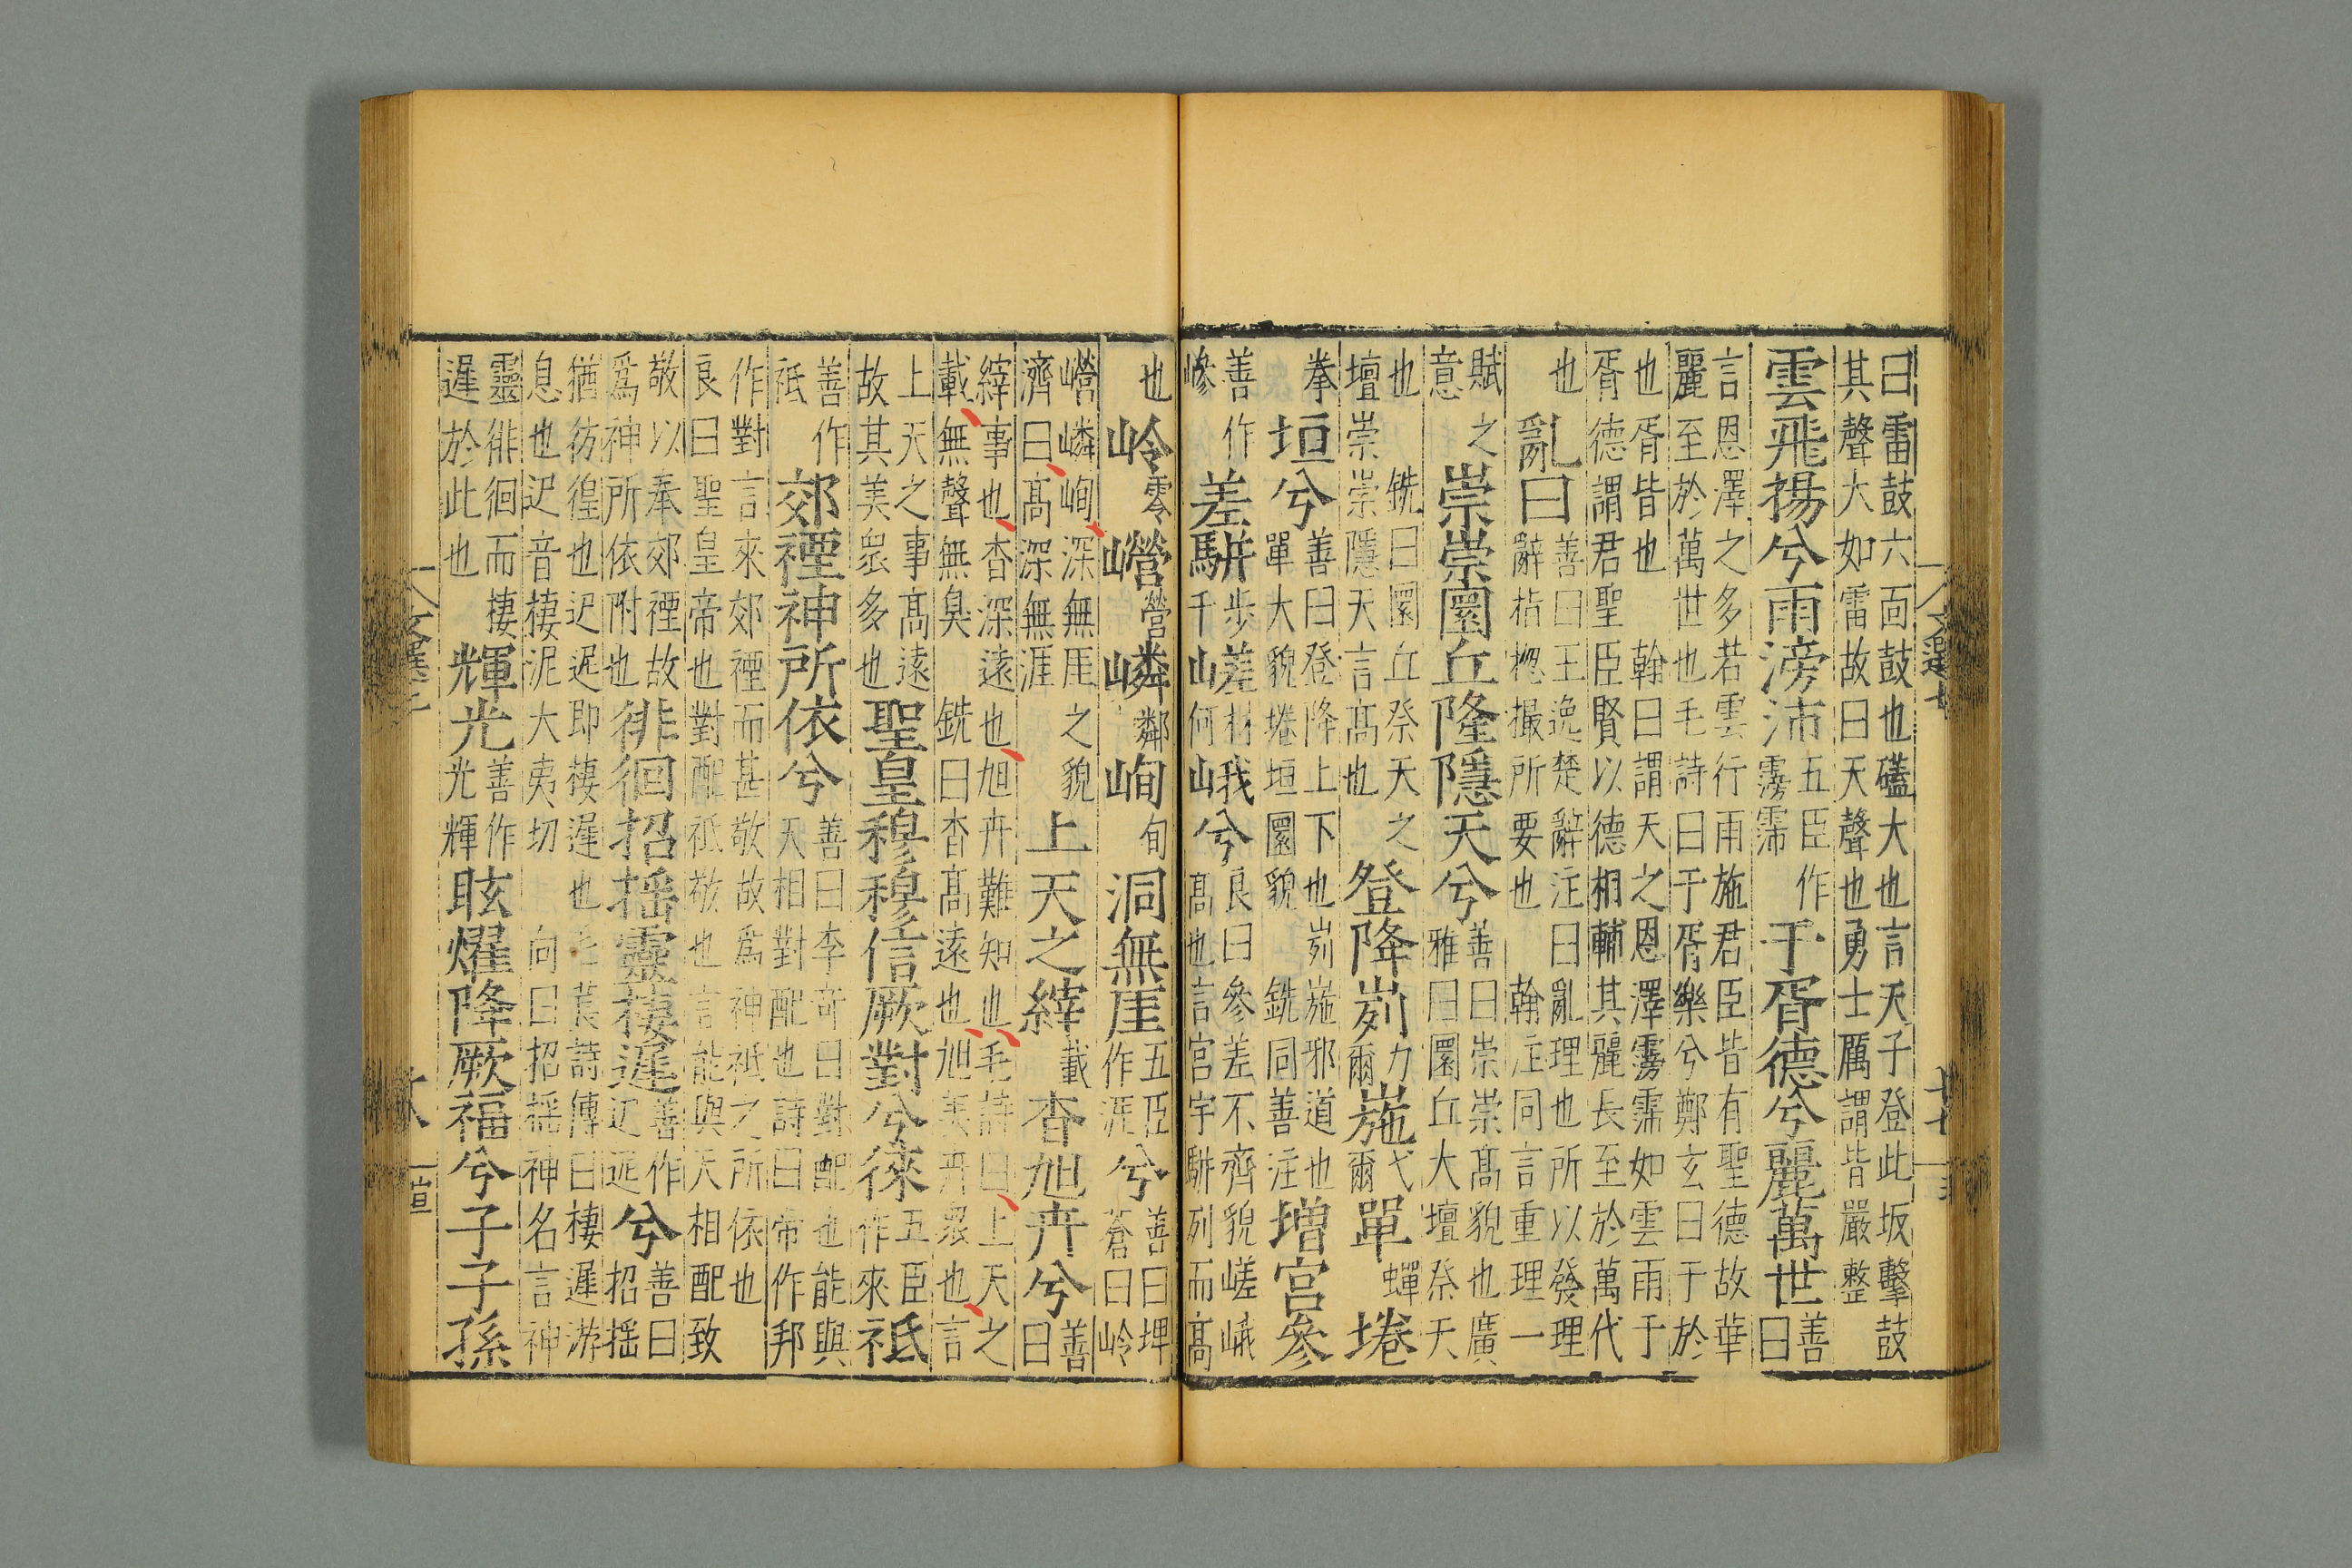 曰雷鼓六面鼓也礚大也言天子登此坂擊鼓
其聲大如雷故曰天聲也勇士厲謂皆嚴整
雲飛揚兮雨滂沛五臣作霶霈于胥德兮麗萬世善曰
言恩澤之多若雲行雨施君臣皆有聖德故華
麗至於萬世也毛詩曰于胥樂兮鄭玄曰于於
也胥皆也翰曰謂天之恩澤霶霈如雲雨于
胥德謂君聖臣賢以德相輔其麗長至於萬代
也
亂曰善曰王逸楚辭注曰亂理也所以發理
辭指揔撮所要也翰注同言重理一
賦之
意
崇崇圜丘隆隱天兮善曰崇崇高貌也廣
雅曰圜丘大壇祭天
也銑曰圜丘祭天之
壇崇崇隱天言高也
登降峛力爾崺弋爾單蟬埢
拳
垣兮善曰登降上下也峛崺邪道也
單大貌埢垣圜貌銑同善注
增宮參
善作
嵾
差駢步差材我兮良曰參差不齊貌嵯峨
千山何山高也言宮宇駢列而高
也
岭零巆營嶙鄰峋旬洞無厓五臣作涯兮善曰埤
蒼曰岭
巆嶙峋深無厓之貌
濟曰高深無涯
上天之縡載杳旭卉兮善曰
縡事也杳深遠也旭卉難知也毛詩曰上天之
載無聲無臭銑曰杳高遠也旭美卉衆也言
上天之事高遠
故其美衆多也
聖皇穆穆信厥對兮徠五臣作來祗
善作
祇
郊禋神所依兮善曰李奇曰對配也能與
天相對配也詩曰帝作邦
作對言來郊禋而甚敬故爲神祇之所依也
良曰聖皇帝也對配祗敬也言能與天相配致
敬以奉郊禋故
爲神所依附也
徘徊招搖靈棲遲善作迉迡兮善曰
招搖
猶彷徨也迉遲即棲遲也毛萇詩傳曰棲遲游
息也迡音棲泥大夷切向曰招搖神名言神
靈徘徊而棲
遲於此也
輝光善作光輝眩燿降厥福兮子子孫